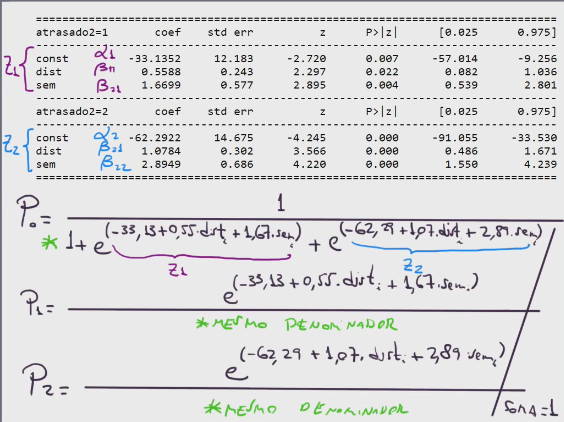 atrasado2=1 coef std err z P>|z| [0.025 0.975]
Z1 const α1 -33.1352 12.183 -2.720 0.007 -57.014 -9.256
dist β11 0.5588 0.243 2.297 0.022 0.082 1.036
sem β21 1.6699 0.577 2.895 0.004 0.539 2.801
atrasado2=2 coef std err z P>|z| [0.025 0.975]
Z2 const α2 -62.2922 14.675 -4.245 0.000 -91.055 -33.530
dist β21 1.0784 0.302 3.566 0.000 0.486 1.671
sem β22 2.8949 0.686 4.220 0.000 1.550 4.239
P0= 1
* 1+e(-33,13+0,55.disti+1,67.semi) + e(-62,29+1,07.disti+2,89.semi)
Z1 Z2
P1= e(-33,13+0,55.disti+1,67.semi)
*MESMO DENOMINADOR
P2= e(-62,29+1,07.disti+2,89 semi)
*MESMO DENOMINADOR
SOMA=1